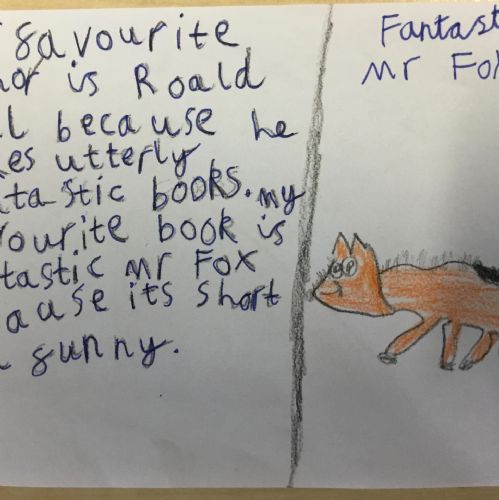 favourite
hor is Roald
l because he
kes utterly
ntastic books. my
vourite book is
ntastic mr Fox
cause its short
funny.
Fantast
mr Fox